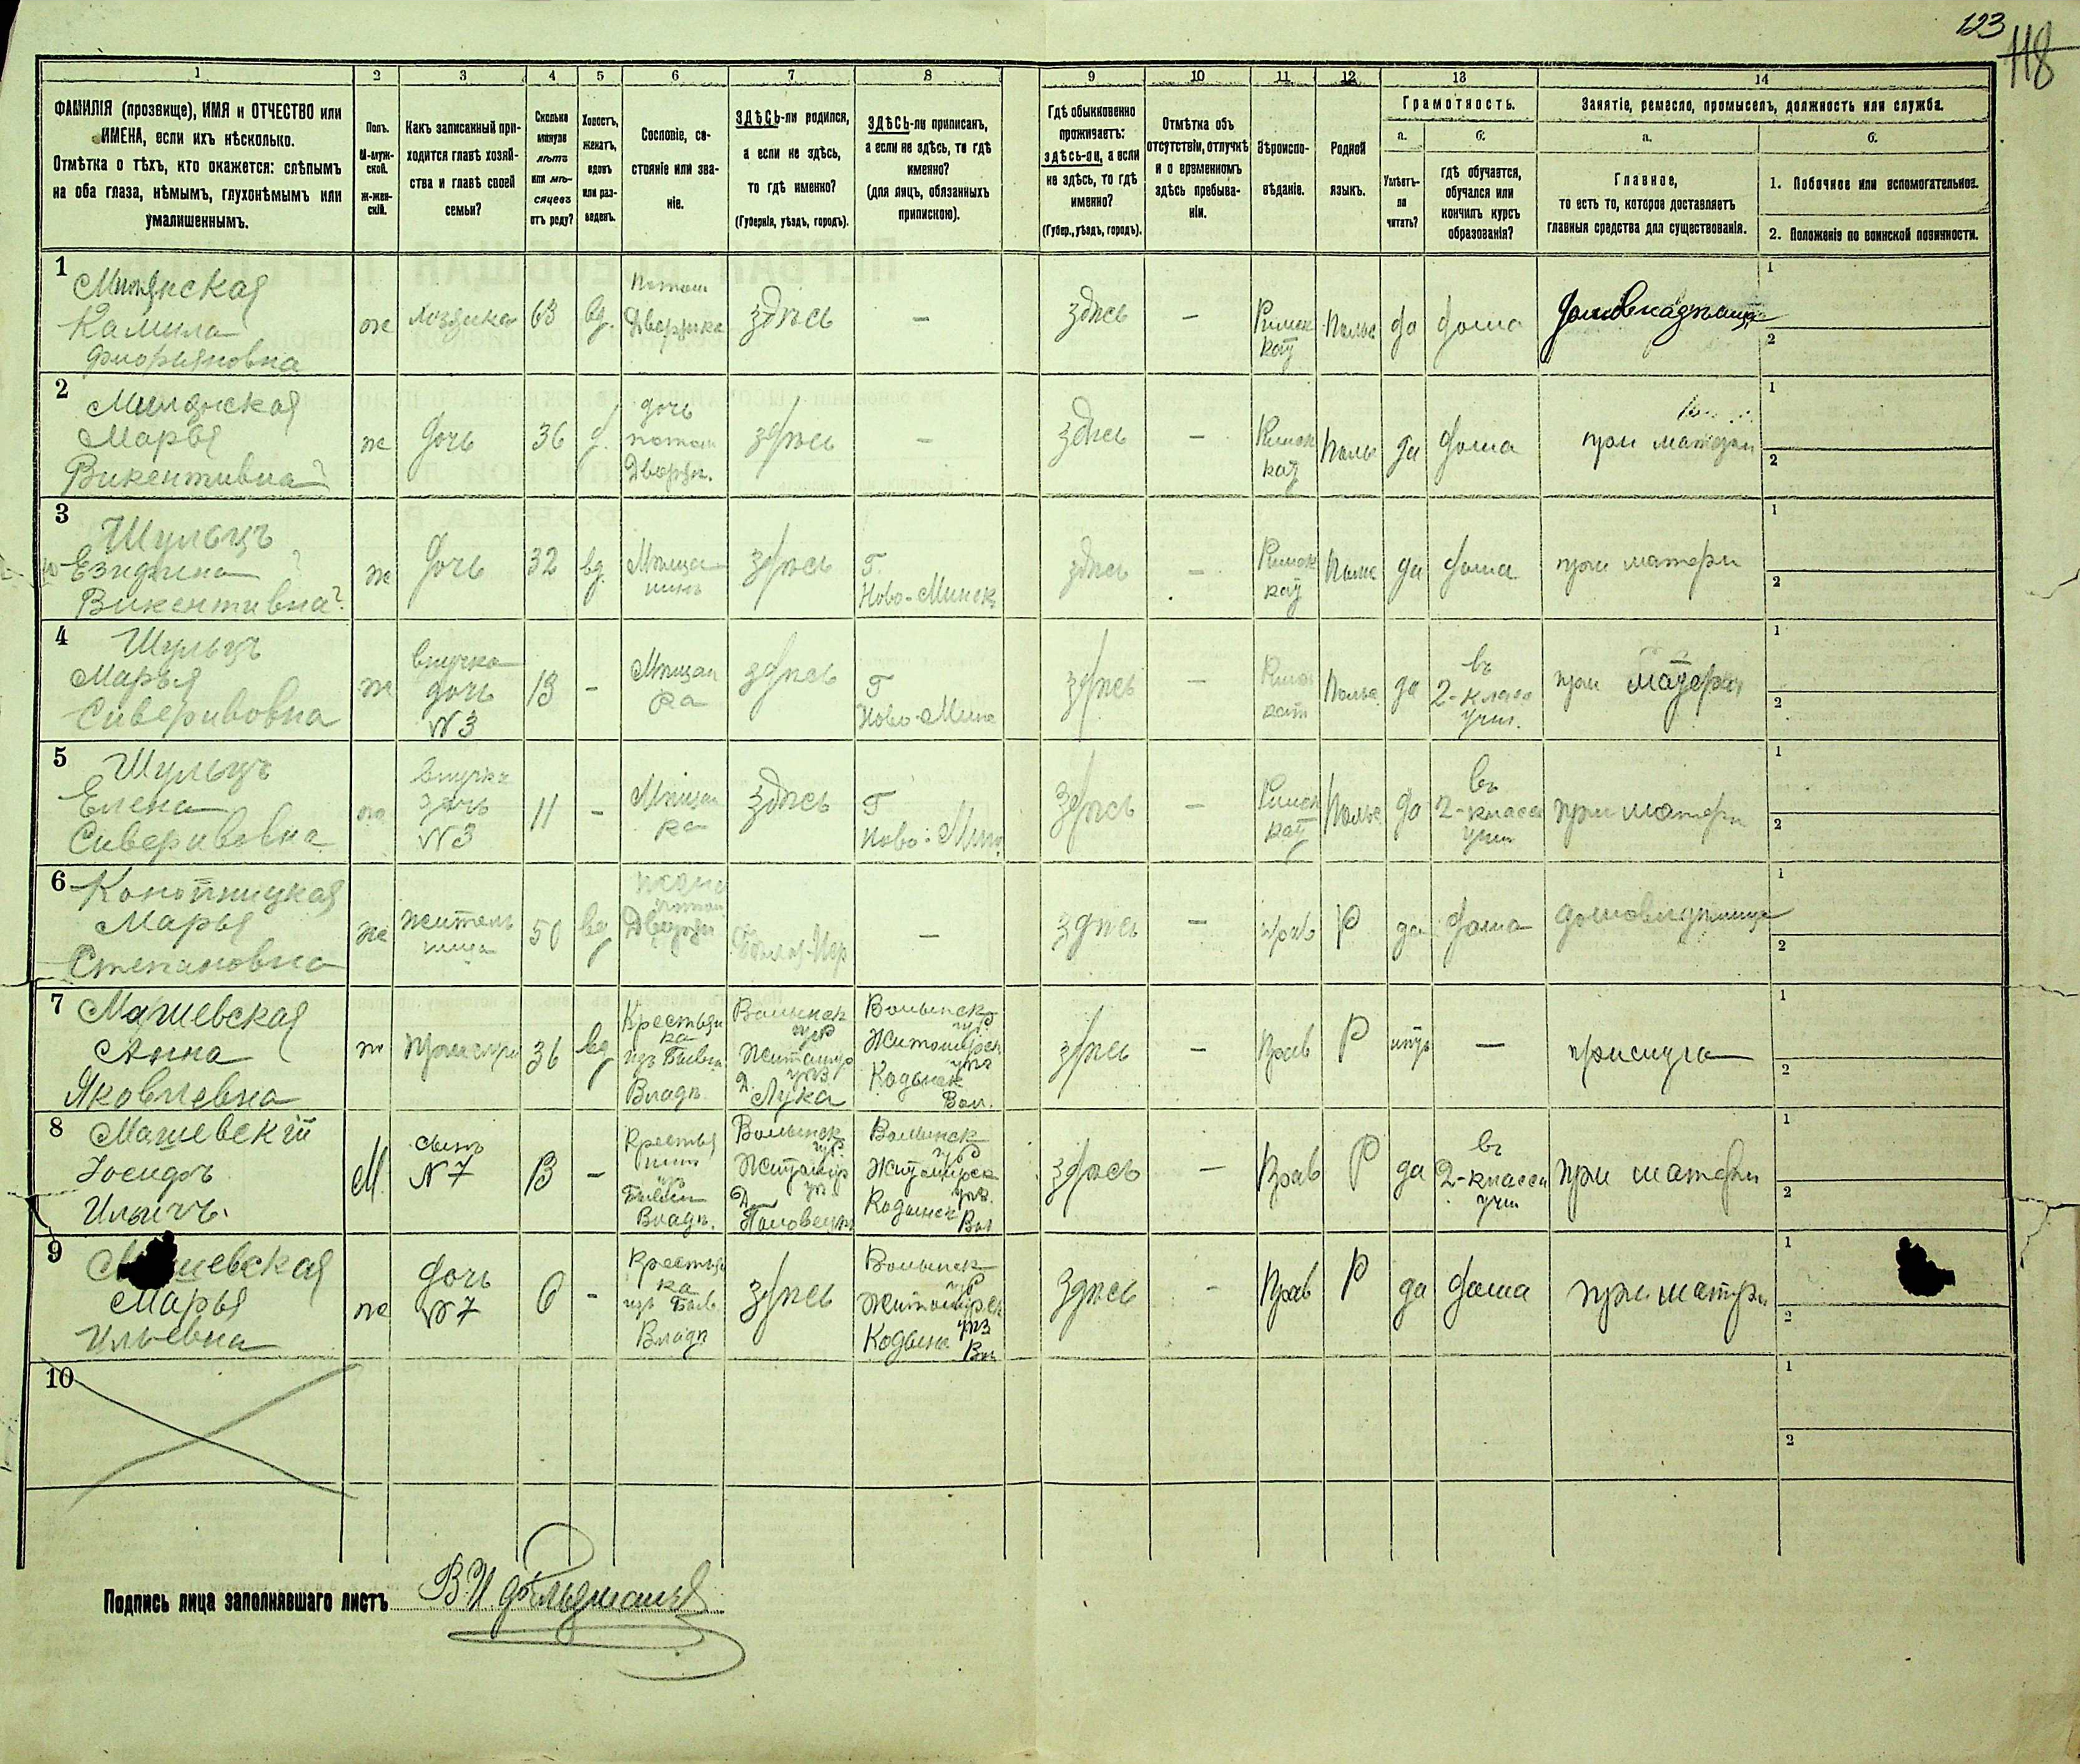 123
118
1
2
3
4
5
6
7
8
9
10
11
12
13
14
ФАМИЛІЯ (прозвище), ИМЯ и ОТЧЕСТВО или
ИМЕНА, если ихъ нѣсколько.
Отмѣтка о тѣхъ, кто окажется: слѣпымъ
на оба глаза, нѣмымъ, глухонѣмымъ или
умалишеннымъ.
Полъ.
М-муж-
ской.
Ж-жен-
скій.
Какъ записанный при-
ходится главѣ хозяй-
ства и главѣ своей
семьи?
Сколько
минуло
лѣтъ
или мѣ-
сяцевъ
отъ роду?
Холостъ,
женатъ,
вдовъ
или раз-
веденъ.
Сословіе, со-
стояніе или зва-
ніе.
ЗДѢСЬ-ли родился,
а если не здѣсь,
то гдѣ именно?
(Губернія, уѣздъ, городъ).
ЗДѢСЬ-ли приписанъ,
а если не здѣсь, то гдѣ
именно?
(для лицъ, обязанныхъ
припискою).
Гдѣ обыкновенно
проживаетъ:
здѣсь-ли, а если
не здѣсь, то гдѣ
именно?
(Губер., уѣздъ, городъ).
Отмѣтка объ
отсутствіи, отлучкѣ
и о временномъ
здѣсь пребыва-
ніи.
Вѣроиспо-
вѣданіе.
Родной
языкъ.
Грамотность.
а.
Умѣетъ-
ли
читать?
б.
гдѣ обучается,
обучался или
кончилъ курсъ
образованія?
Занятіе, ремесло, промыселъ, должность или служба.
а.
Главное,
то есть то, которое доставляетъ
главныя средства для существованія.
б.
1. Побочное или вспомогательное.
2. Положеніе по воинской повинности.
1
Камила
Флорьяновна
же
хозяйка
63
вд.
Потом
Дворянка
здѣсь
—
здѣсь
—
Римск
кат
Польс
да
дома
домовладѣлица
1
2
2
Марья
Викентивна
же
дочь
36
д.
дочь
потом
Дворян.
здѣсь
—
здѣсь
—
Римск
кат
Польс
да
дома
при матери
1
2
3
Шульцъ
Викентивна?
же
дочь
32
вд
Мѣща
здѣсь
Г.
Ново-Минск
здѣсь
—
Римск
кат
Польс
да
дома
при матери
1
2
4
Шульцъ
Марья
Сиверивовна
же
внучка
дочь
№3
13
-
Мѣщан
ка
здѣсь
Г
Ново-Минс
здѣсь
—
Римск
кат
Польс
да
въ
2-класс
учил.
при матери
1
2
5
Шульцъ
Елена
Сиверивовна
же
внучка
дочь
№3
11
-
Мѣщан
ка
здѣсь
Г
Ново-Мин
здѣсь
—
Римск
кат
Польс
да
въ
2-класс
учил
при матери
1
2
6
Конопницкая
Марья
Степановна
же
житель
ница
50
вд
жена
потом
Дворян
—
здѣсь
—
прав
Р
да
дома
домовладѣлица
1
2
7
Машевская
Анна
Яковлевна
ж
36
вд
Крестьян
ка
изъ Бывш
Владѣ.
Волынск
губ
Житомир
уѣз
Д. Лука
Волынск
губ
Житомирск
уѣз
Кодынск
Вол.
здѣсь
—
Прав
Р
нѣтъ
—
прислуга
1
2
8
Машевскій
Іосифъ
Ильичъ.
М
сынъ
N7
13
-
Крестья
нин
изъ
Бывш
Владѣ.
Волынск
губ.
Житомир
уѣ
Волынск
губ
Житомирск
уѣз.
Кодынск Вол
здѣсь
—
Прав
Р
да
въ
2-класс
учил
при матери
1
2
9
Марья
Ильевна
же
дочь
№7
6
-
Крестьян
ка
изъ Бывш
Владѣ
здѣсь
Волынск
губ
Житомирск
уѣз
Кодынс Вол
здѣсь
-
Прав
Р
да
дома
при матери
1
2
10
1
2
Подпись лица заполнявшаго листъ В.И. Фельдманъ